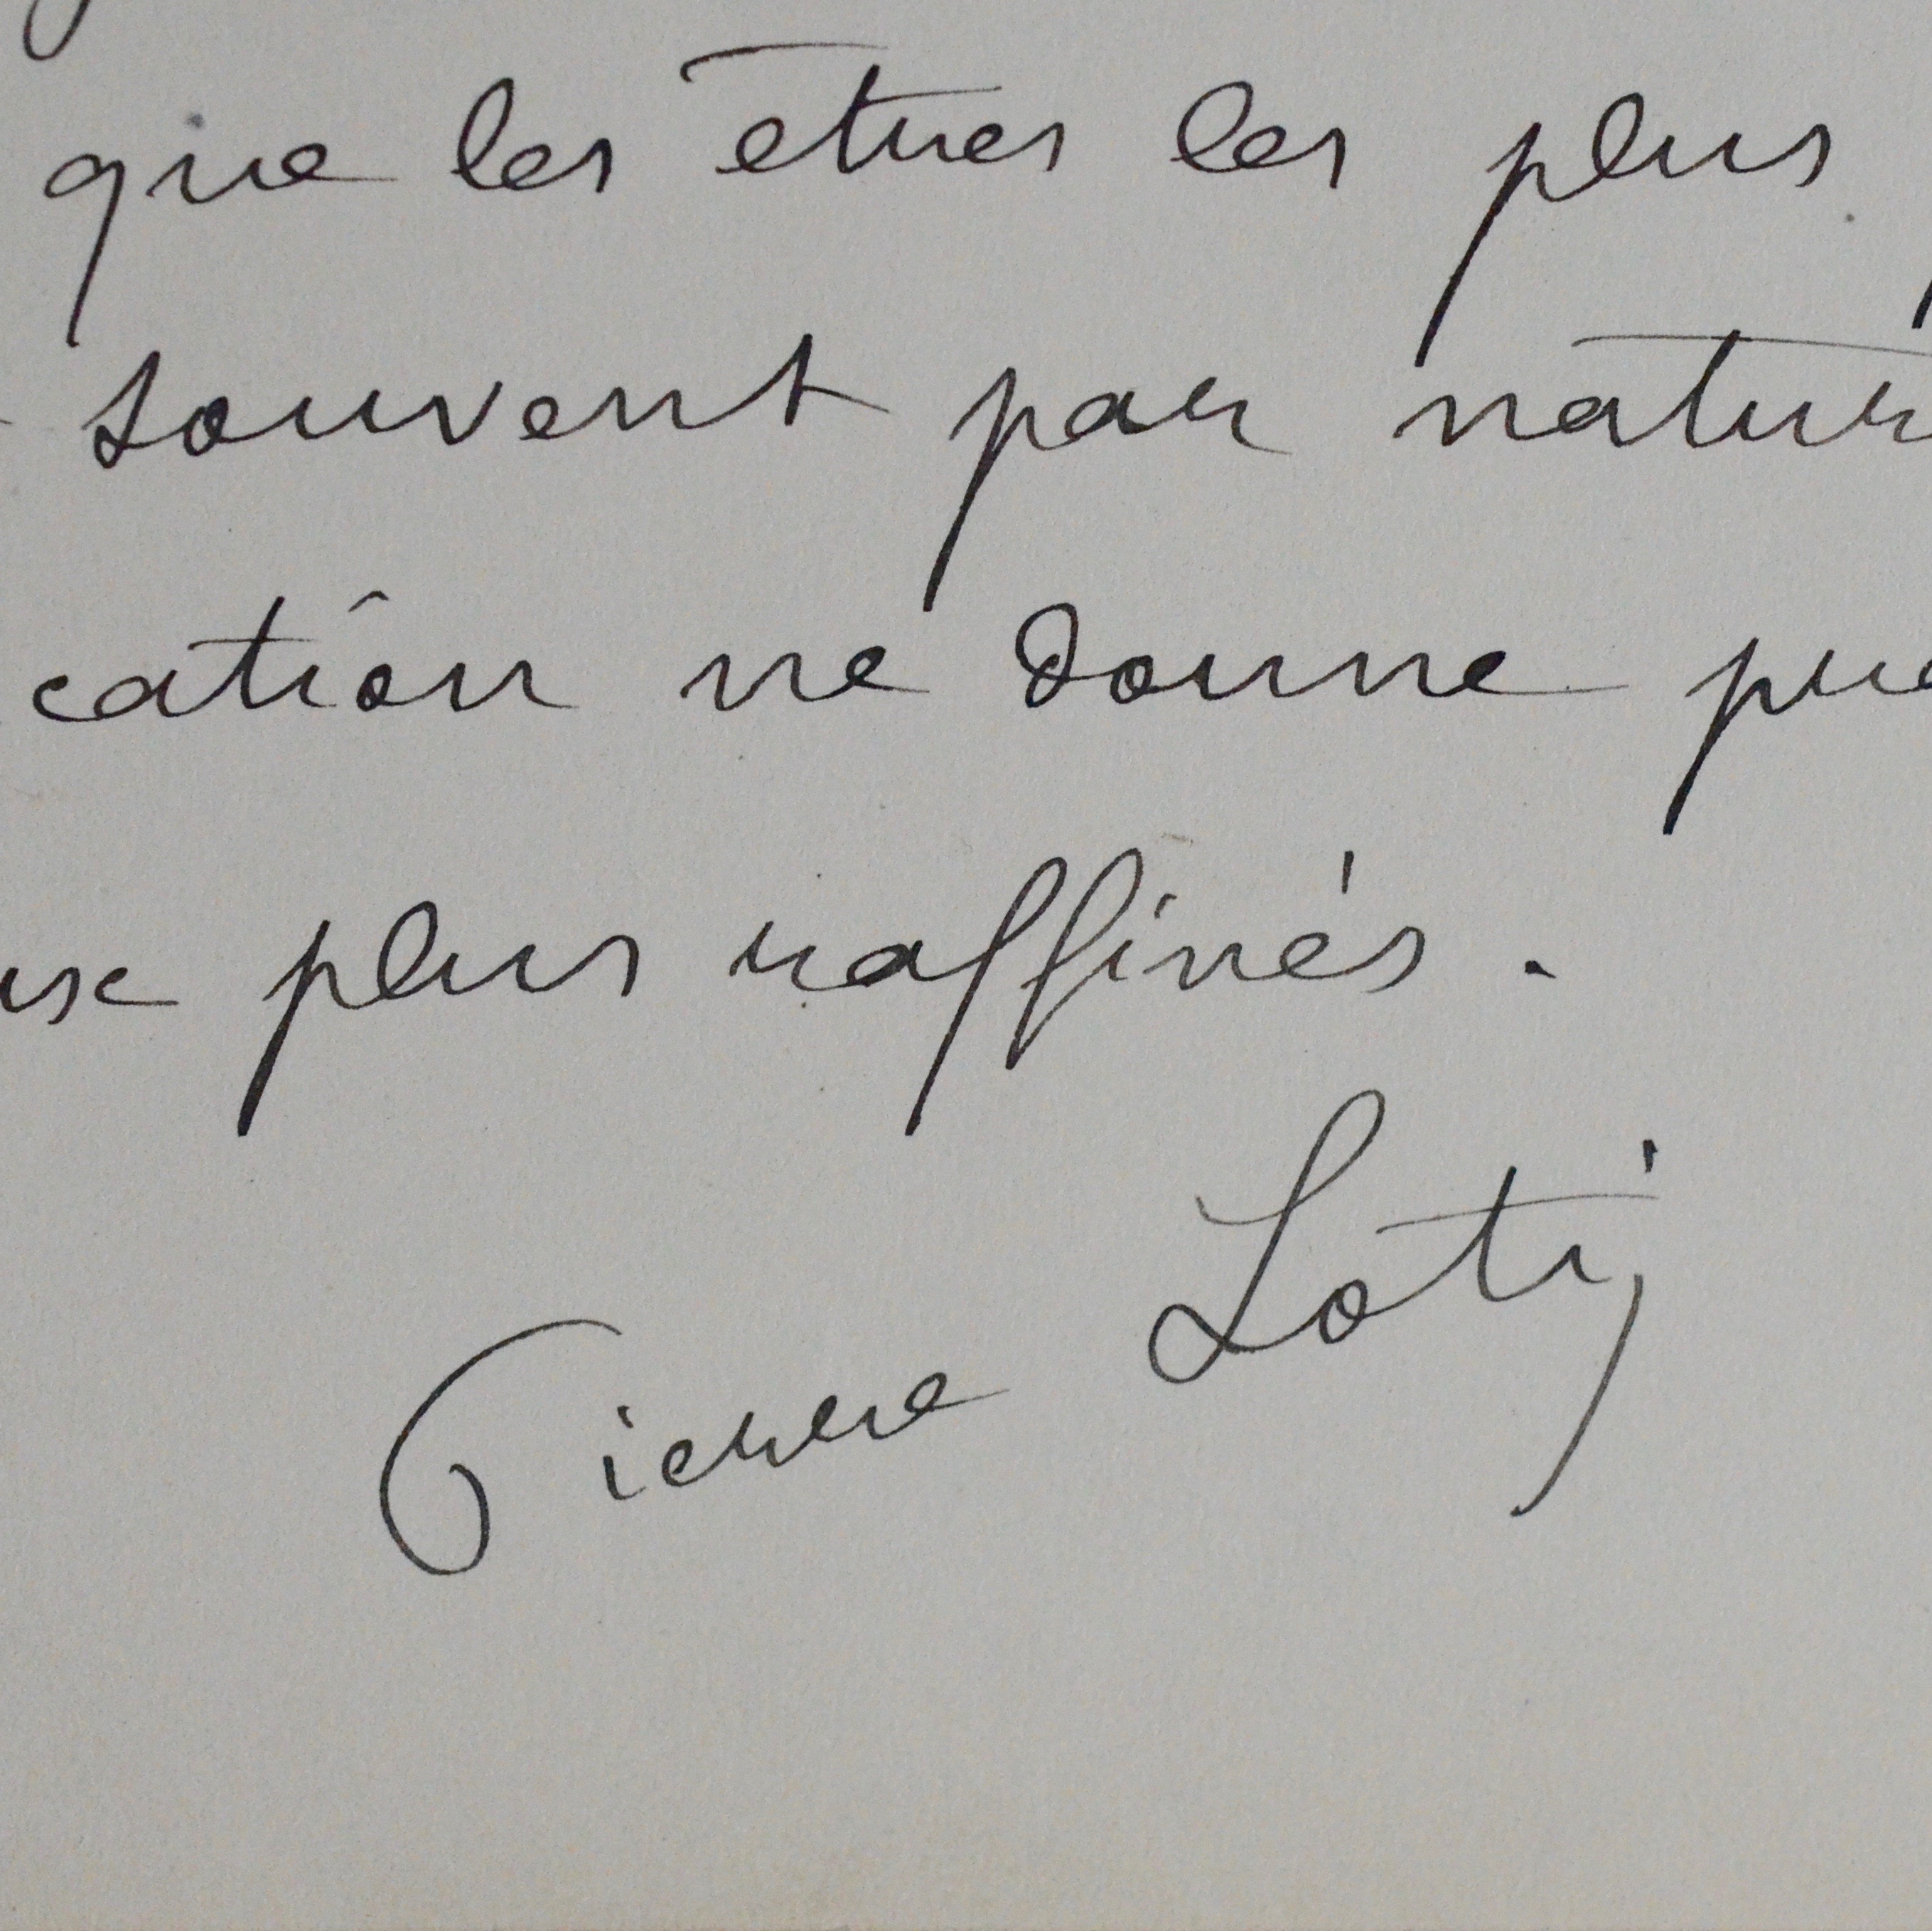 que les êtres les plus
souvent par natur
cation ne donne pre
ux plus raffinés.
Pierre Loti